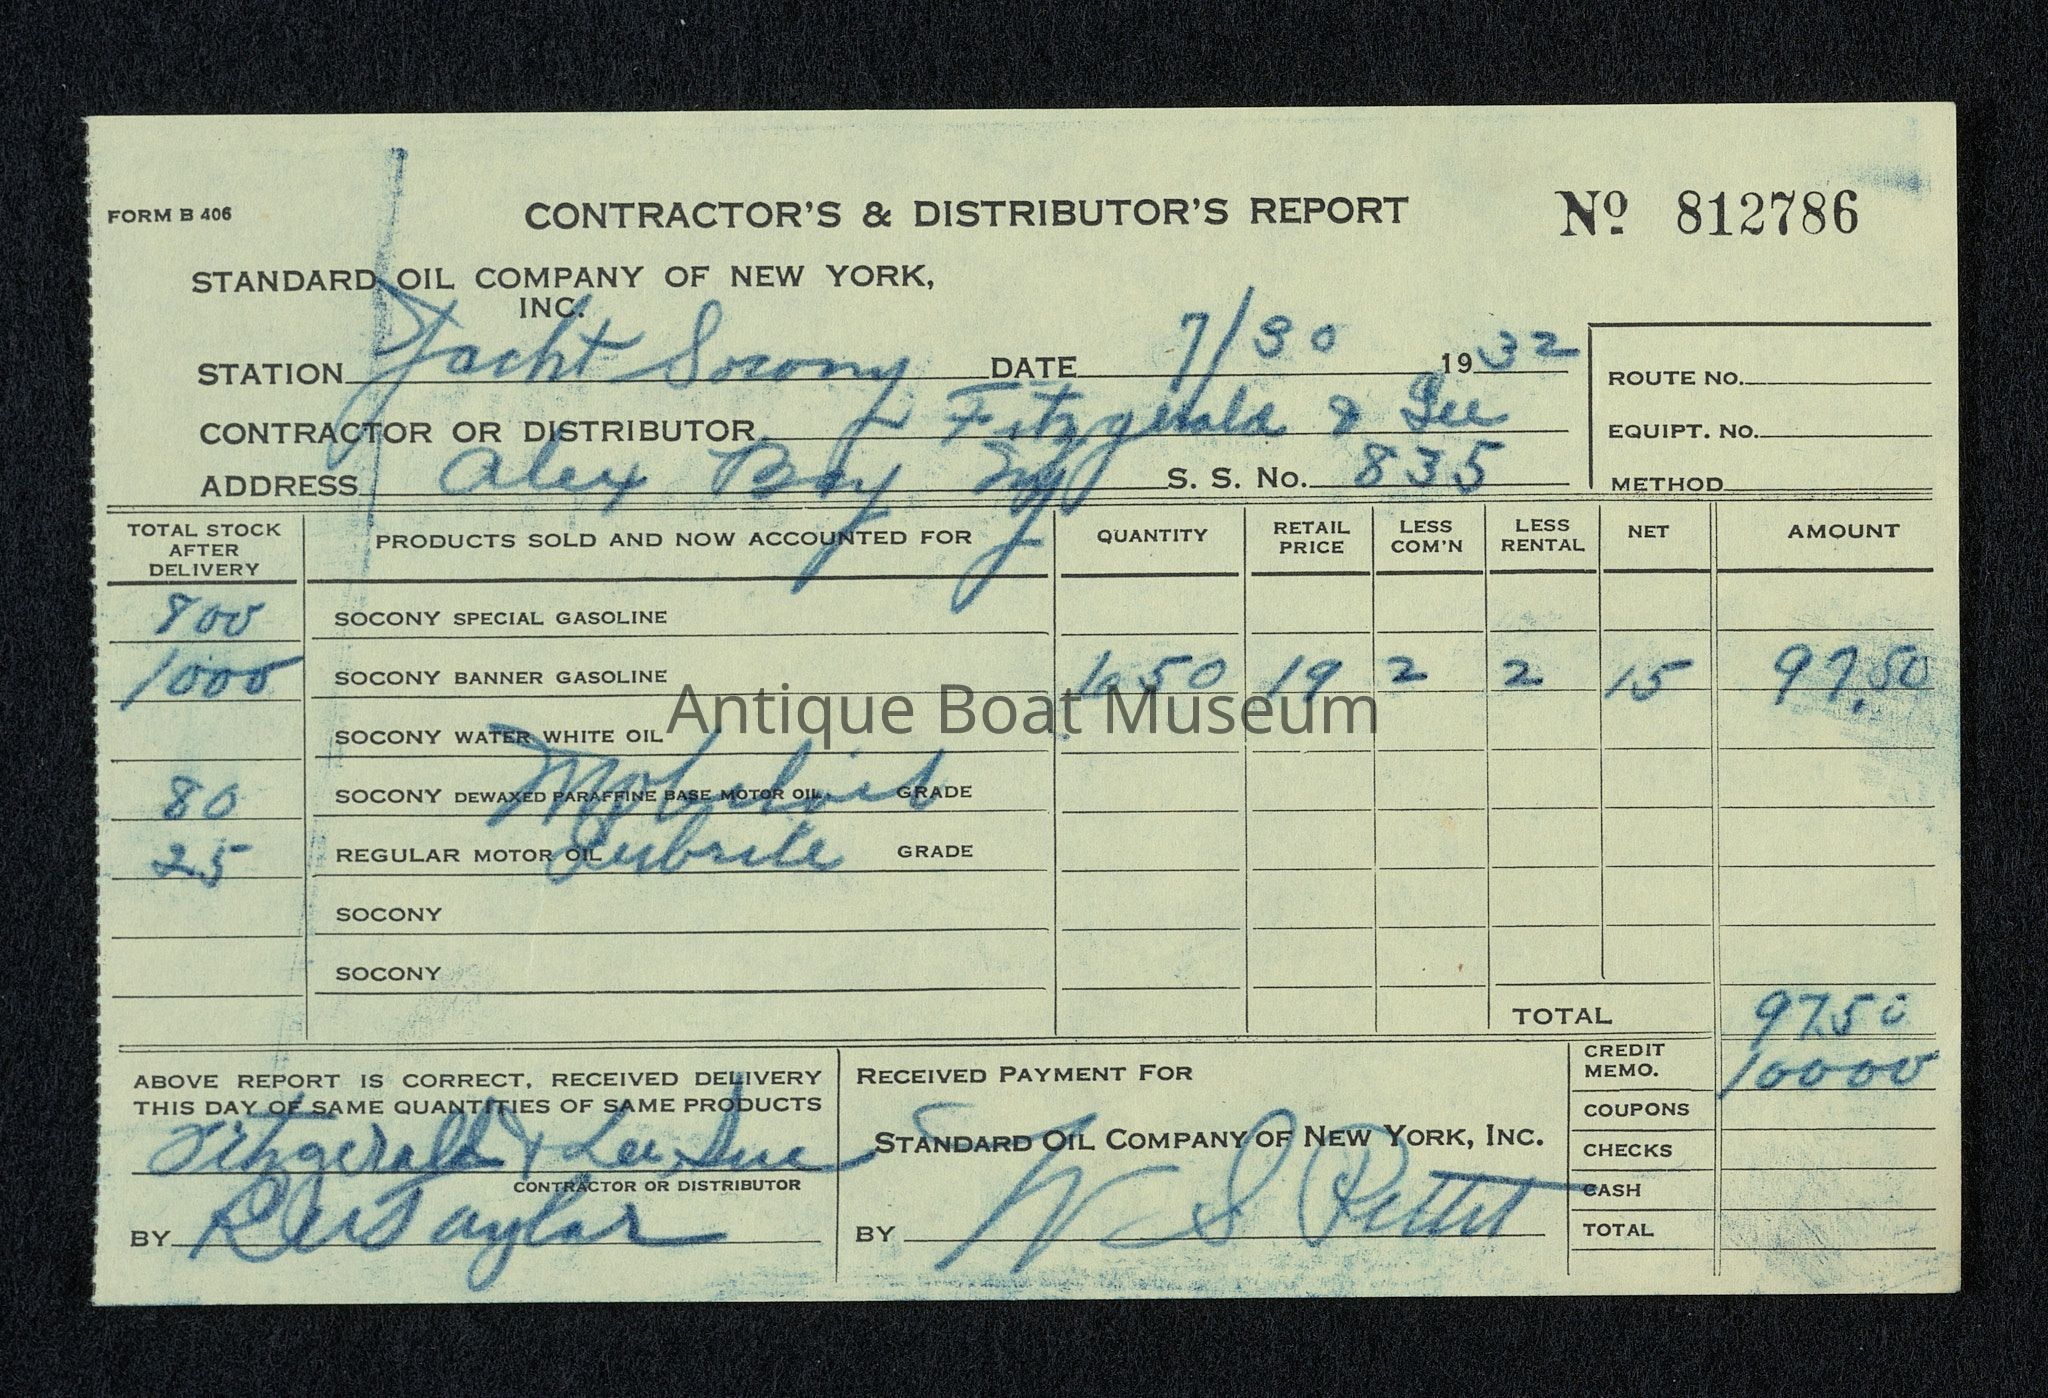 FORM B 406
CONTRACTOR'S & DISTRIBUTOR'S REPORT
Nº 812786
STANDARD OIL COMPANY OF NEW YORK, INC.
STATION Yacht Socony DATE 7/30 1932
ROUTE NO.
CONTRACTOR OR DISTRIBUTOR Fitzgerald & Lee
EQUIPT. NO.
ADDRESS Alex Bay NY S. S. NO. 835
METHOD
TOTAL STOCK AFTER DELIVERY PRODUCTS SOLD AND NOW ACCOUNTED FOR QUANTITY RETAIL PRICE LESS COM'N LESS RENTAL NET AMOUNT
800 SOCONY SPECIAL GASOLINE
1000 SOCONY BANNER GASOLINE 650 19 2 2 15 97.50
Antique Boat Museum
SOCONY WATER WHITE OIL
80 SOCONY DEWAXED PARAFFINE BASE MOTOR OIL Mobiloil GRADE
25 REGULAR MOTOR OIL Lubrite GRADE
SOCONY
SOCONY
TOTAL 97.50
CREDIT MEMO. 10000
COUPONS
CHECKS
CASH
TOTAL
ABOVE REPORT IS CORRECT, RECEIVED DELIVERY
THIS DAY OF SAME QUANTITIES OF SAME PRODUCTS
Fitzgerald & Lee, Inc
CONTRACTOR OR DISTRIBUTOR
BY Taylor
RECEIVED PAYMENT FOR
STANDARD OIL COMPANY OF NEW YORK, INC.
BY W S Pettit